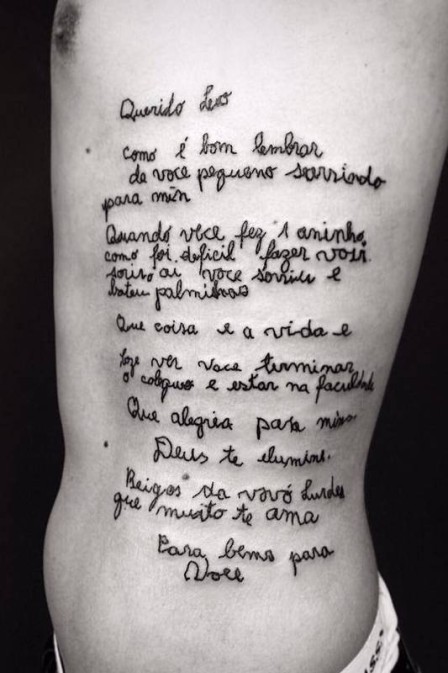 Querido Leo
como é bom lembrar
de voce pequeno sorrindo
para min
Quando voce fez 1 aninho,
como foi deficil fazer voçê
sorir, ai voce sorriu e
bateu palminhas
Que coisa e a vida e
hoje ver voce terminar
o colegio e estar na faculdade
Que alegria para mim
Deus te elumine.
Beigos da vovó Lurdes
que muito te ama
Para bems para
Voce